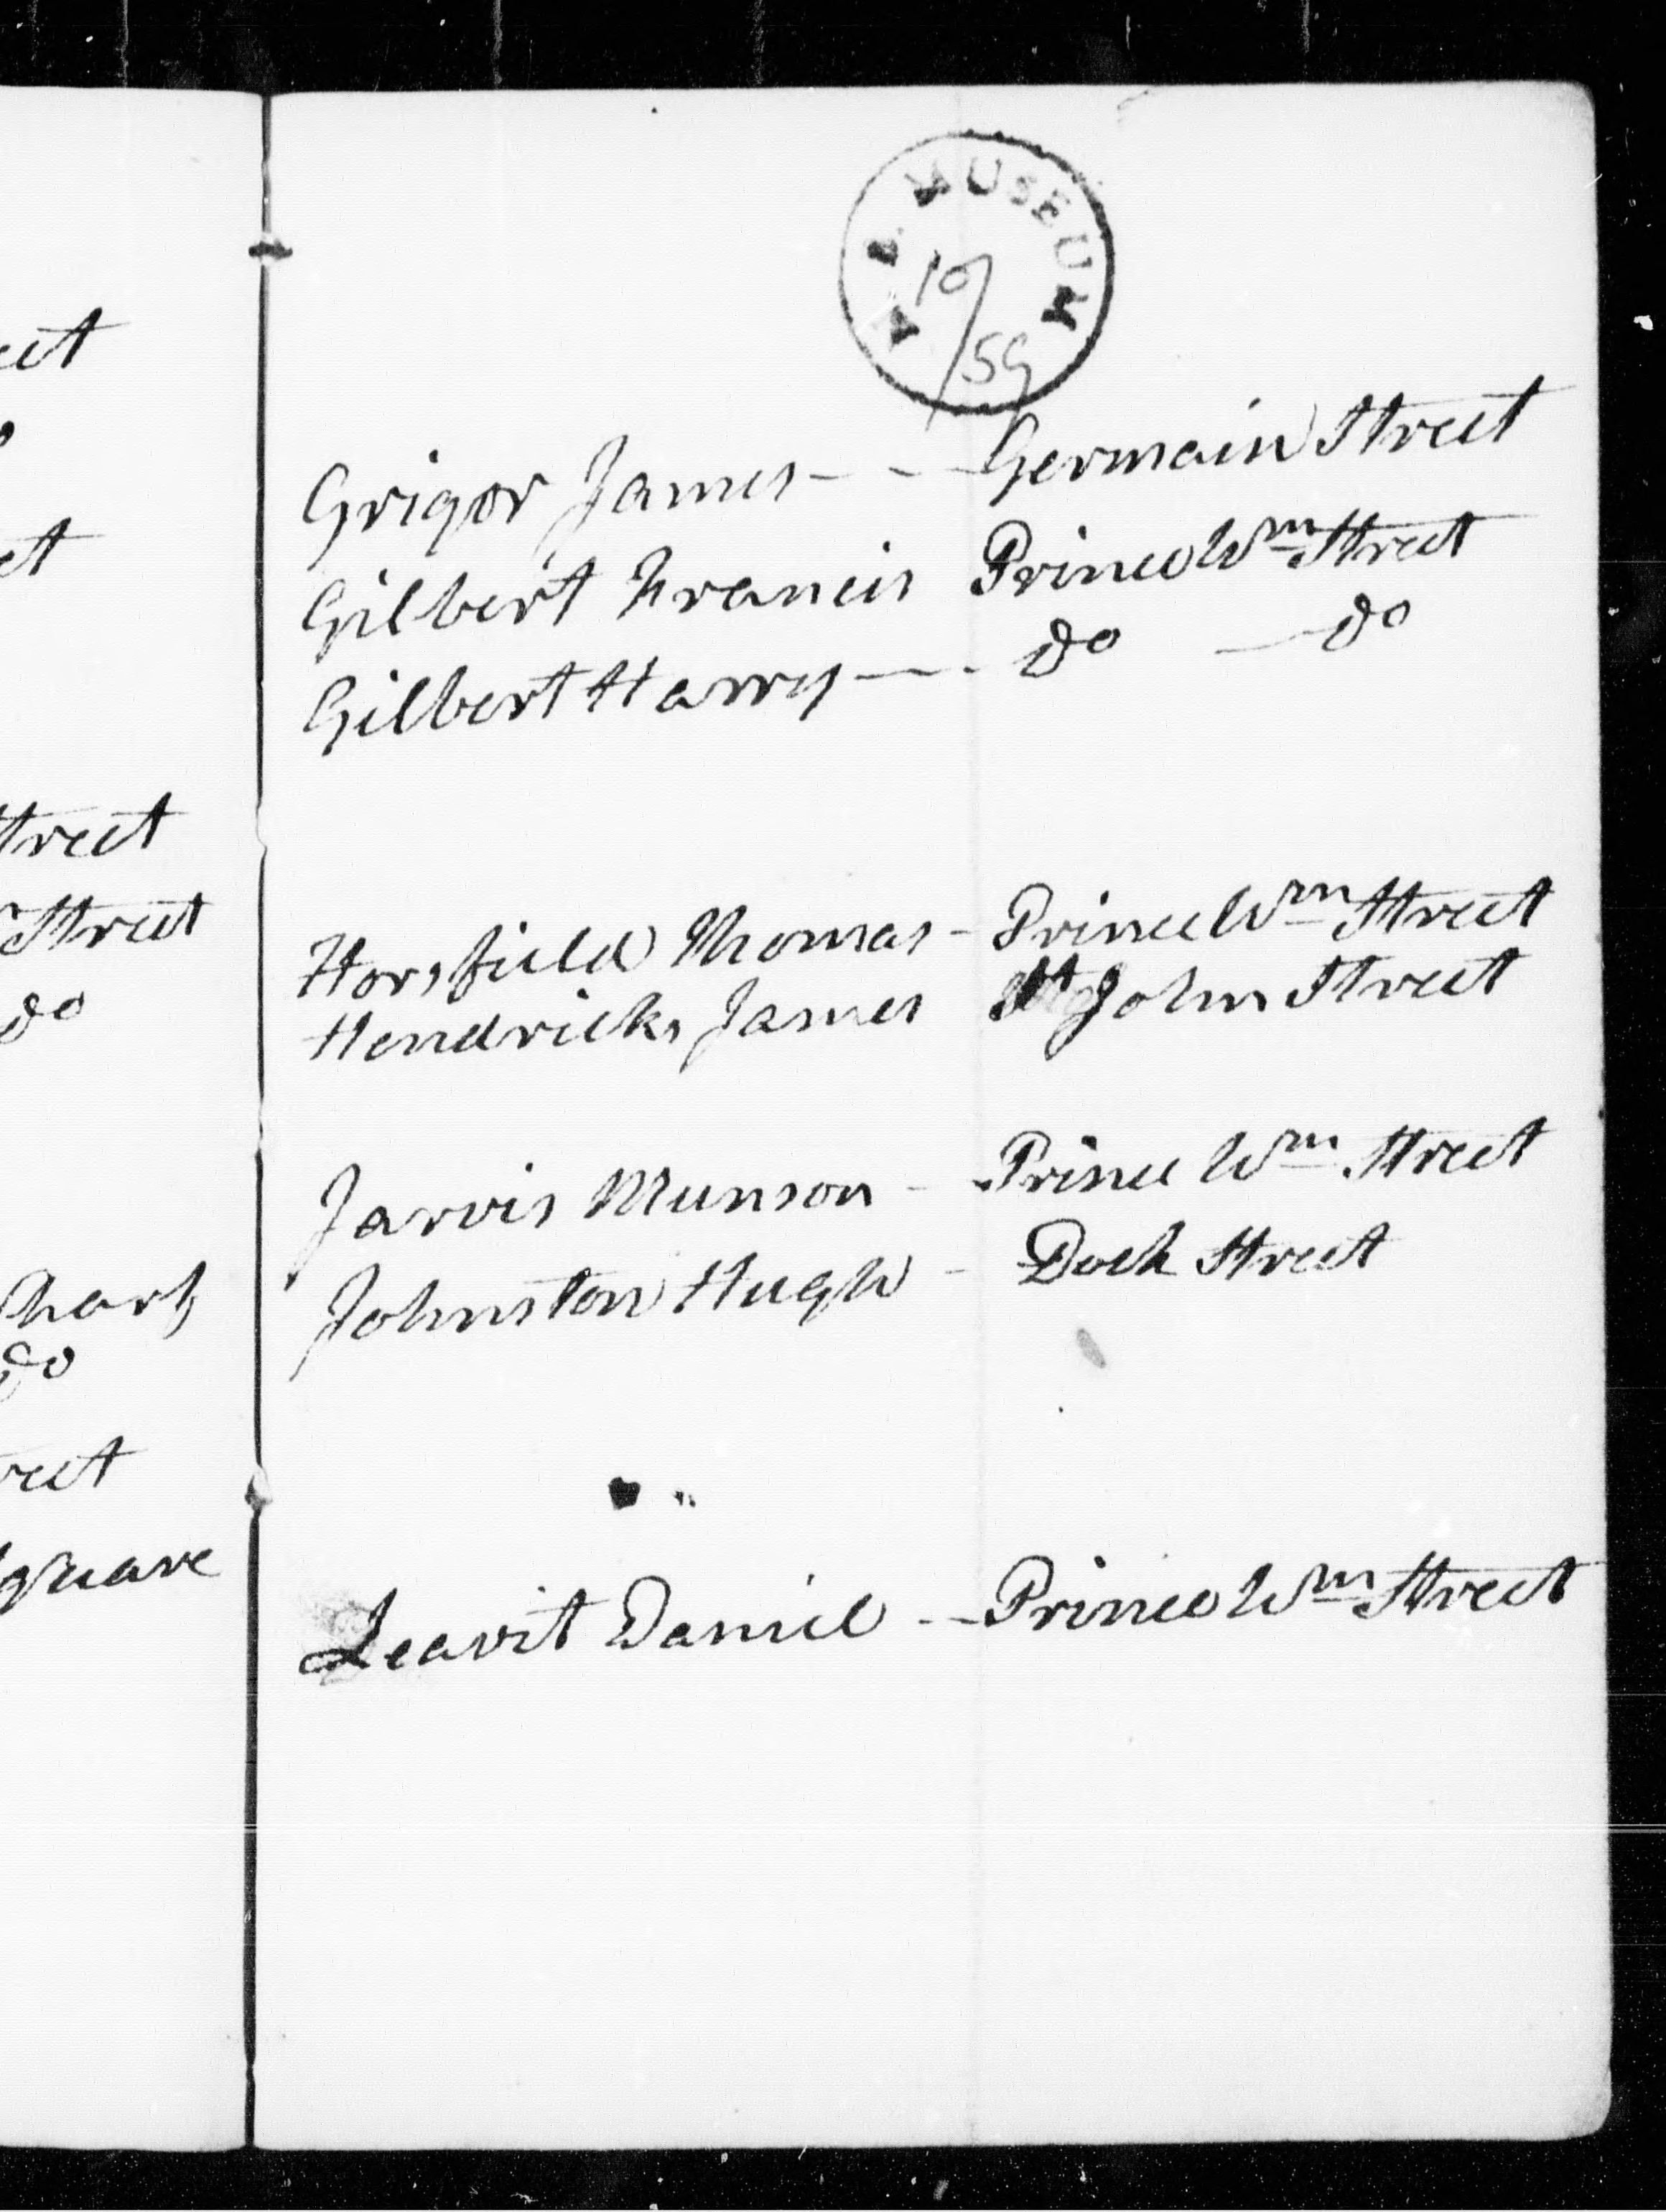 eet
et
treet
Street
do
do
reet
Square
N.B. MUSEUM
10/59
Grigor James - - - Germain Street
Gilbert Francis Prince Wm Street
Gilbert Harry - - do - do
Horsfield Thomas - Prince Wm Street
Hendricks James St John Street
Jarvis Munson - Prince Wm Street
Johnston Hugh - Dock Street
Leavit Daniel - - Prince Wm Street